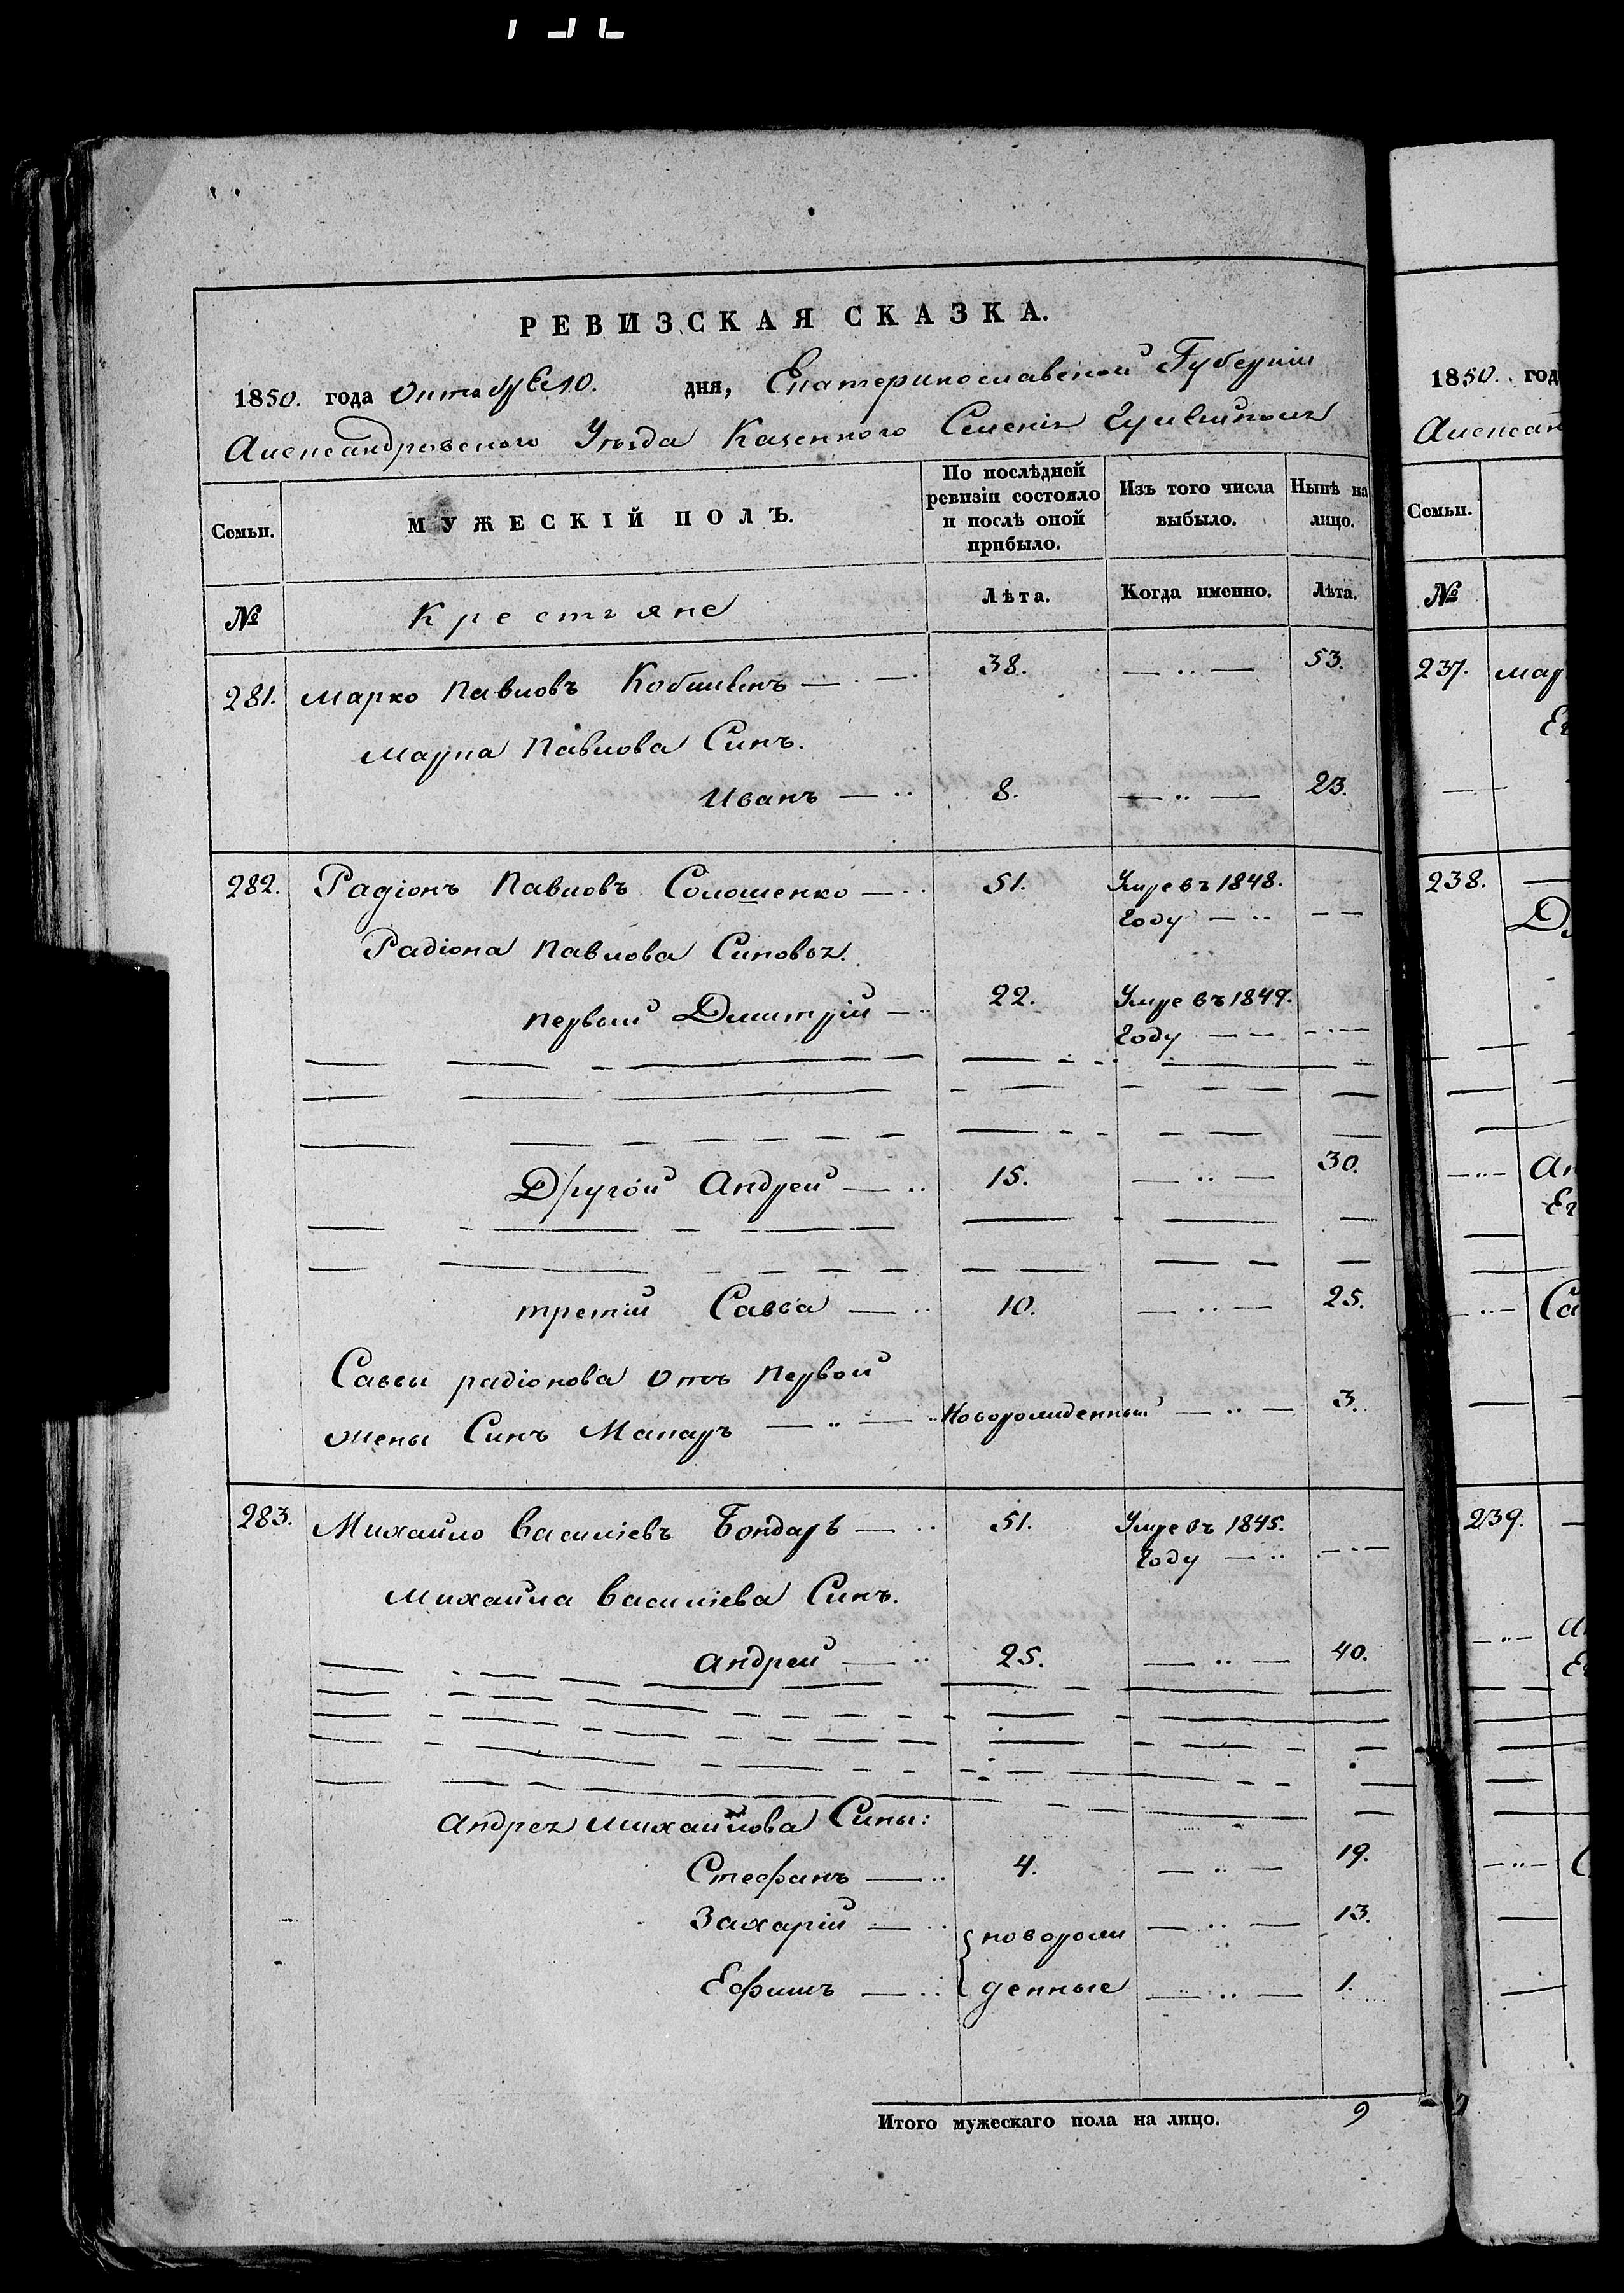 РЕВИЗСКАЯ СКАЗКА.
1850. года Октября 10. дня, Екатеринославской Губерніи
Александровского Уезда Казенного Селенія
Семьи. МУЖЕСКІЙ ПОЛЪ. По послѣдней ревизіи состояло и послѣ оной прибыло. Изъ того числа выбыло. Нынѣ на лицо.
№ Крестьяне Лѣта. Когда именно. Лѣта.
281. Марко Павловъ 38. — „ — 53.
Марка Павлова Синъ.
Иванъ — „ 8. — „ — 23.
282. Радіонъ Павловъ Солошенко — 51. Умре въ 1848.
Году — „ — —
Радіона Павлова Синовья.
первый Дмитрій — 22. Умре въ 1849.
Году — — — · —
Другой Андрей — „ 15. — „ — 30.
третій Савва — „ 10. — „ — 25.
Саввы радіонова отъ первой
жены Синъ Макаръ — „ — Новорожденный — „ — 3.
283. Михайло Василіевъ Бондарь — „ 51. Умре въ 1845.
Году — „ — · —
Михайла Василіева Синъ.
Андрей — „ 25. — „ — 40.
Андрея Михайлова Сины:
Стефанъ — „ 4. — „ — 19.
Захарій — „ { новорож — „ — 13.
Ефимъ — „ денные — „ — 1.
Итого мужескаго пола на лицо. 9
1850. год
Алексан
Семьи.
№
237. Мар
238. —
Ан
Ег
Са
239. —